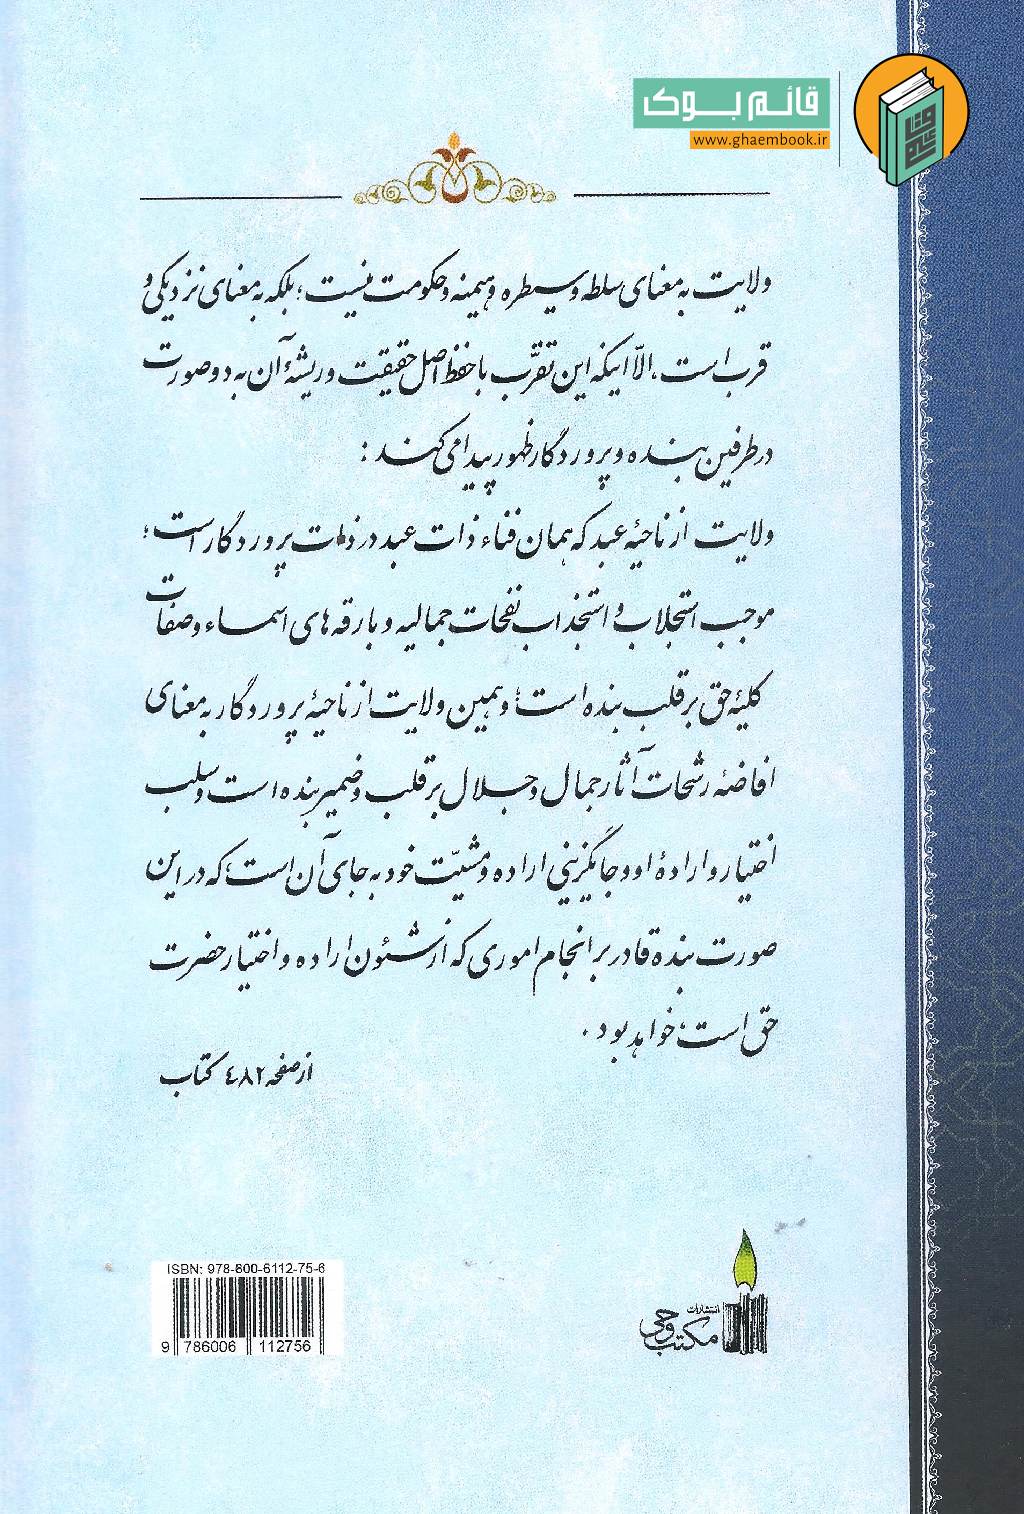 قائم بوک
www.ghaembook.ir
ولایت به معنای سلطه و سیطره و هیمنه و حکومت نیست؛ بلکه به معنای نزدیکی و
قرب است، الاّ اینکه این تقرّب با حفظ اصل حقیقت و ریشهٔ آن به دو صورت
در طرفین بنده و پروردگار ظهور پیدا می‌کند:
ولایت از ناحیهٔ عبد که همان فناء ذات عبد در ذات پروردگار است؛
موجب استجلاب و استجذاب نفحات جمالیه و بارقه‌های اسماء و صفات
کلیهٔ حق بر قلب بنده است؛ و همین ولایت از ناحیهٔ پروردگار به معنای
افاضهٔ رشحات آثار جمال و جلال بر قلب و ضمیر بنده است و سلب
اختیار و ارادهٔ او و جایگزینی اراده و مشیّت خود به جای آن است؛ که در این
صورت بنده قادر بر انجام اموری که از شئون اراده و اختیار حضرت
حق است خواهد بود.
از صفحه ٤٨٢ کتاب
ISBN: 978-600-6112-75-6
9 786006 112756
انتشارات
مکتب وحی